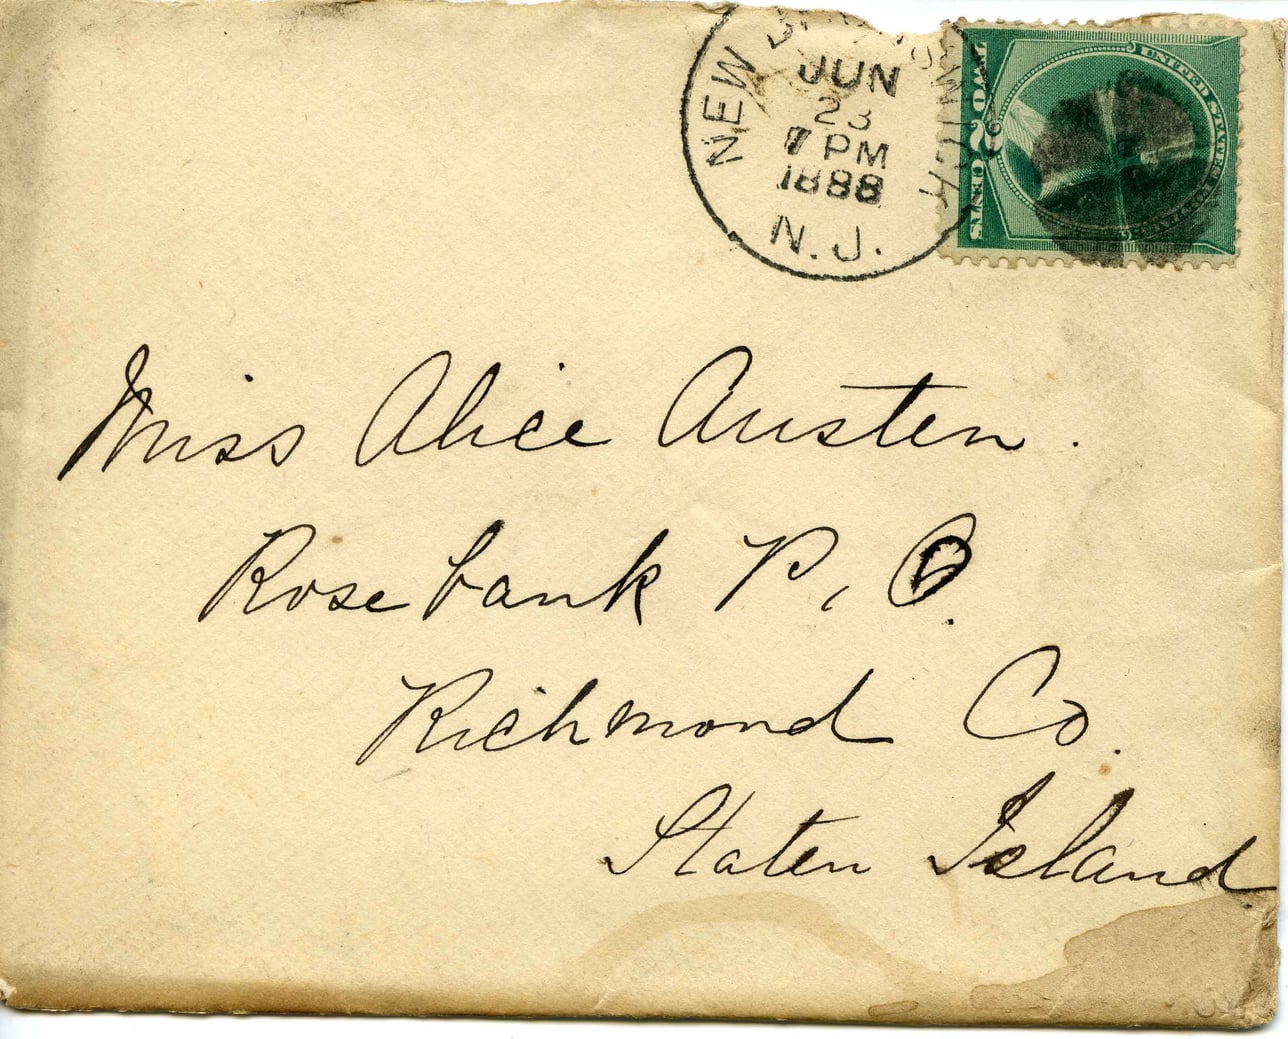 NEW BRUNSWICK
JUN
23
7 PM
1888
N.J.
UNITED STATES POSTAGE
TWO 2 CENTS
Miss Alice Austen.
Rosebank P. O.
Richmond Co.
Staten Island